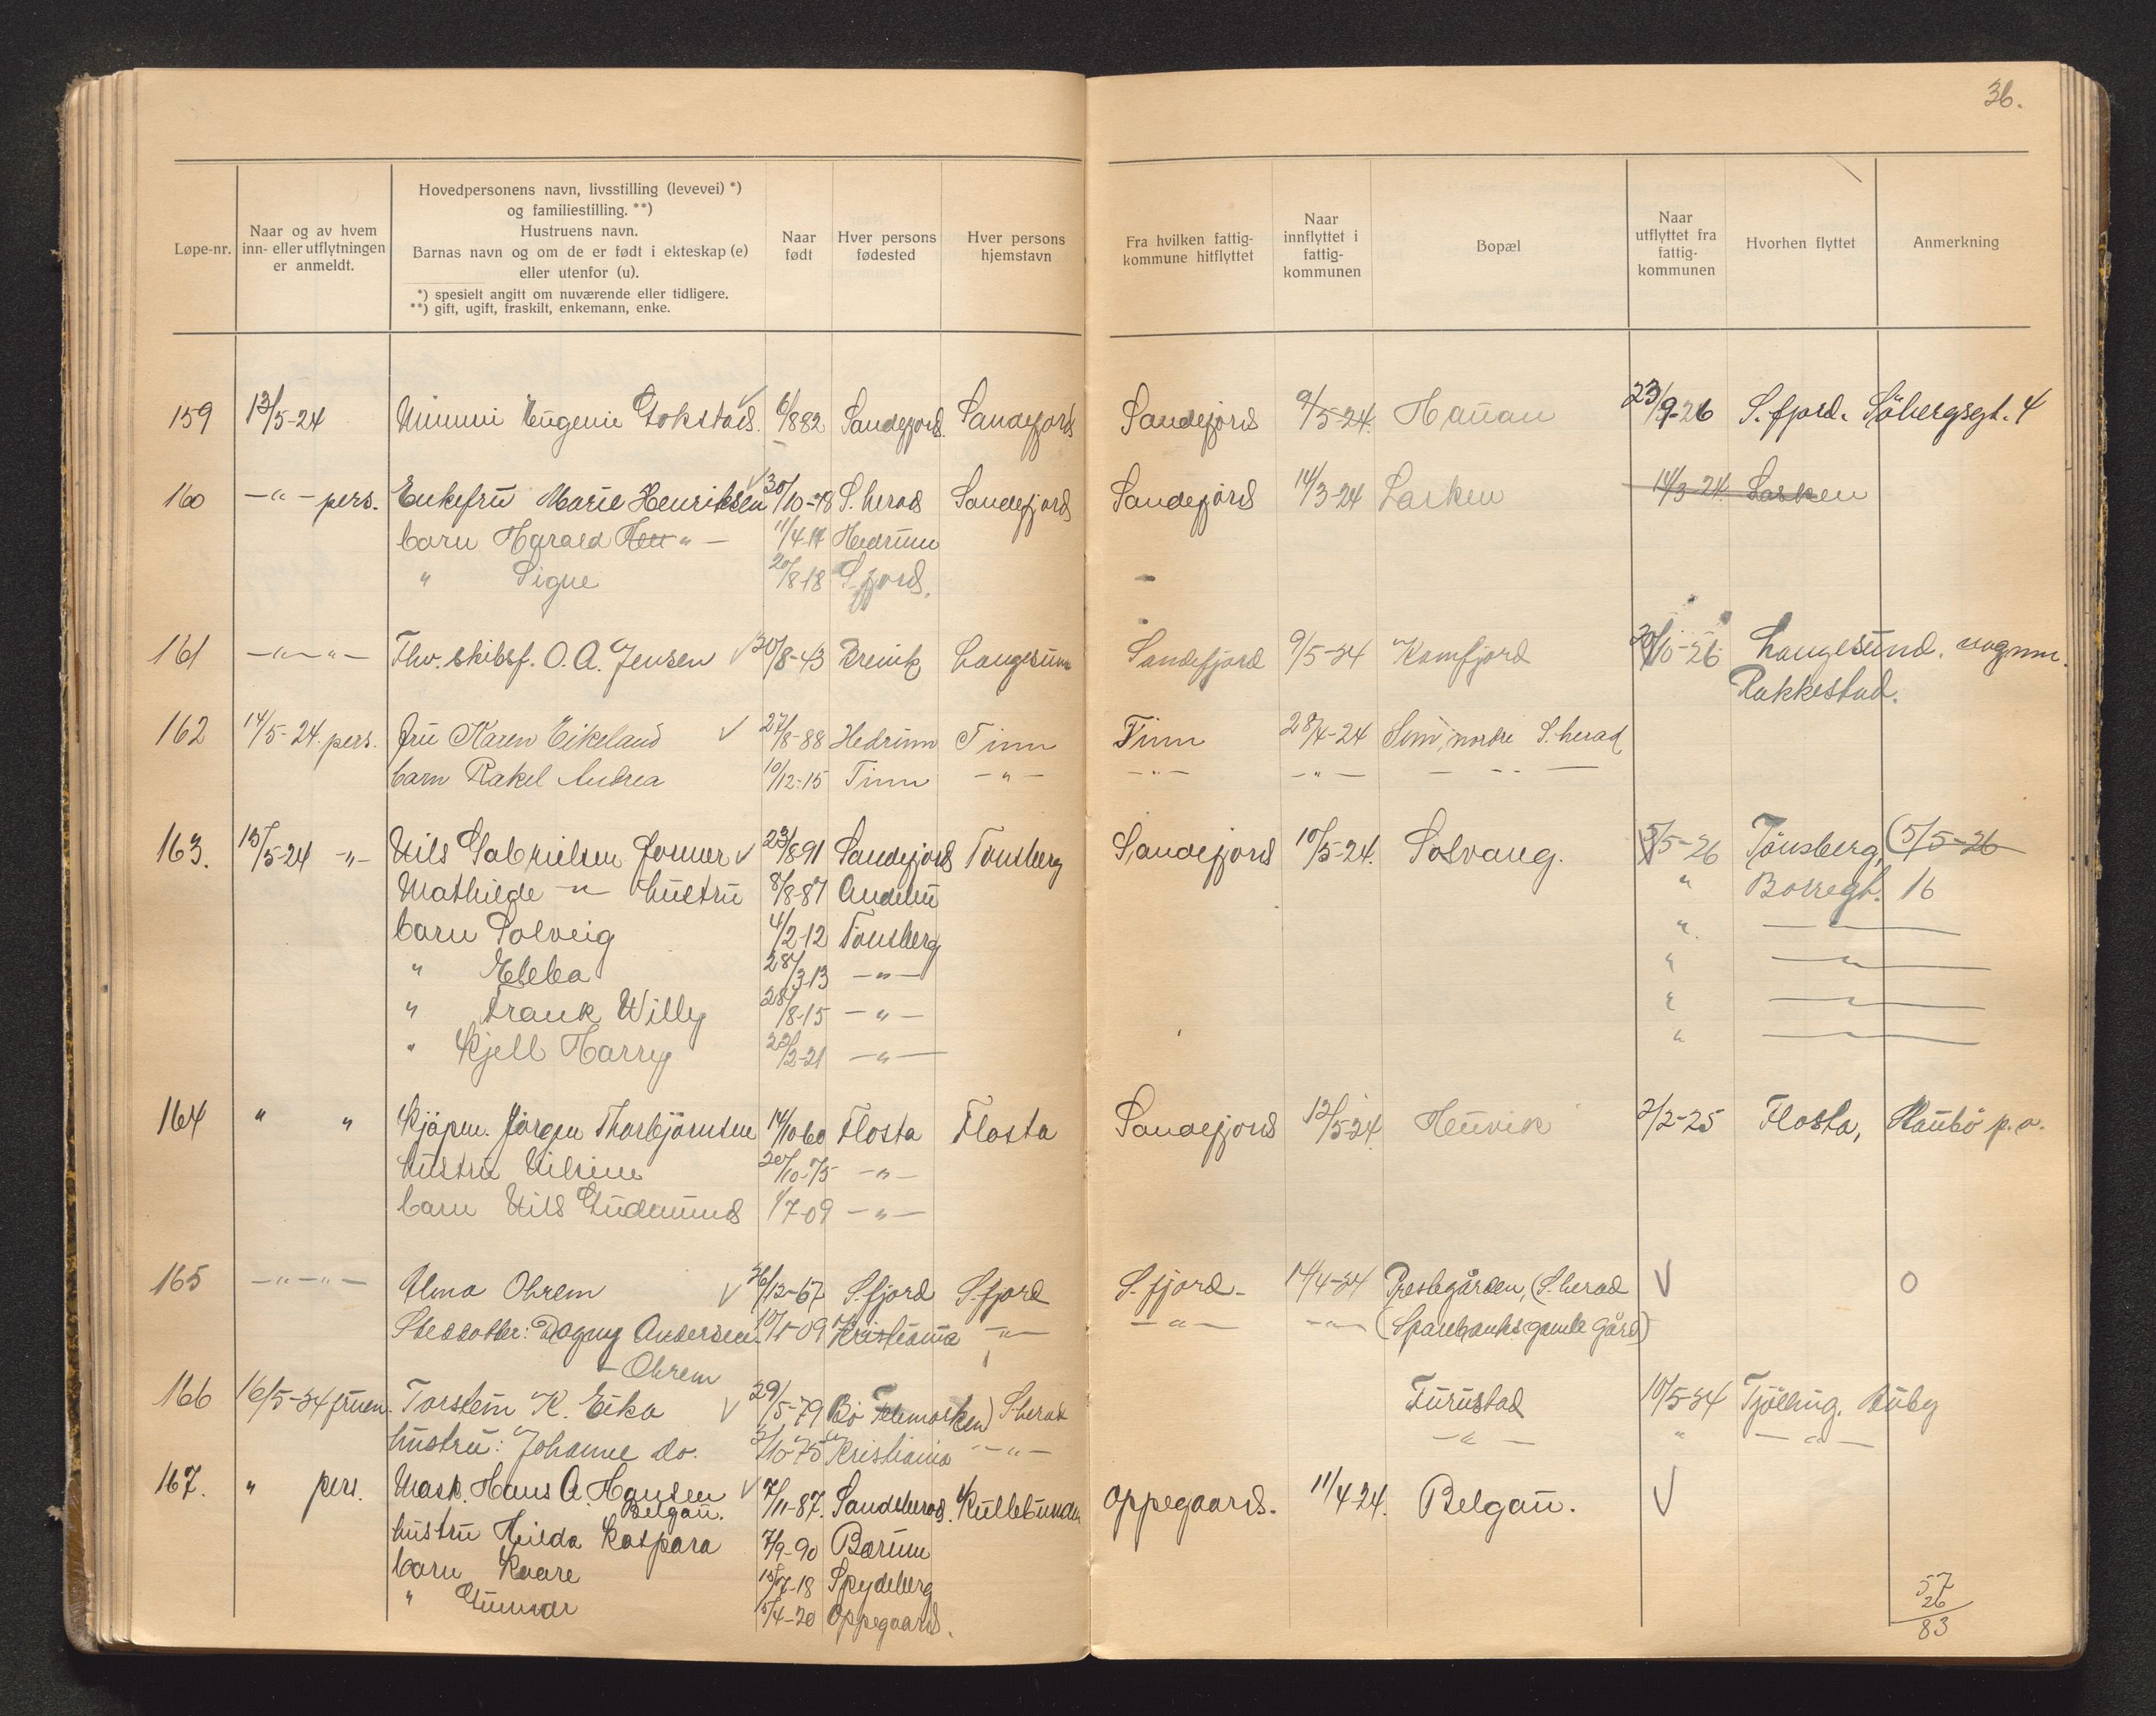 36.
Løpe-nr.
Naar og av hvem
inn- eller utflytningen
er anmeldt.
Hovedpersonens navn, livsstilling (levevei) *)
og familiestilling. **)
Hustruens navn.
Barnas navn og om de er født i ekteskap (e)
eller utenfor (u).
*) spesielt angitt om nuværende eller tidligere.
**) gift, ugift, fraskilt, enkemann, enke.
Naar
født
Hver persons
fødested
Hver persons
hjemstavn
Fra hvilken fattig-
kommune hitflyttet
Naar
innflyttet i
fattig-
kommunen
Bopæl
Naar
utflyttet fra
fattig-
kommunen
Hvorhen flyttet
Anmerkning
159 13/5-24 Mimmi Eugenie Gokstad. 6/882 Sandefjord. Sandefjord Sandefjord 9/5-24. Hauan 23/9-26 S.fjord. Söbergsgt. 4
160 -"- pers. Enkefru Marie Henriksen 30/10-78 S.herad Sandefjord Sandefjord 14/3-24 Lasken 14/3-24. Lasken
barn Harald Hen " - 11/4.17 Hedrum
" Signe 20/8-18 S.fjord.
161 -"- "- Fhv. skibsf. O. A. Jensen 30/8-43 Brevik Langesund Sandefjord 9/5-24 Kamfjord 20/10-26 Langesund.
Rakkestad.
162 14/5-24. pers. fru Karen Eikeland 27/8-88 Hedrum Tinn Tinn 28/4-24 nordre S.herad
barn Rakel Andrea 10/12-15 Tinn -"- -"- -"- - " -
163. 15/5-24 -"- Nils Gabrielsen former 23/891 Sandefjord Tønsberg Sandefjord 10/5-24. Solvang. 5/5-26 Tönsberg, (5/5-26
Mathilde -"- hustru 8/8-87 Andebu " Borregt. 16
barn Solveig 4/2-12 Tønsberg " -"-
" Ebba 28/3-13 -"- " -"-
" Frank Willy 28/8-15 -"- " -"-
" Kjell Harry 22/2-21 -"- " -"-
164 " " Kjöpm. Jörgen Thorbjörnsen 14/1060 Flosta Flosta Sandefjord 12/5-24 Heuvik 2/2-25 Flosta, Staubö p.o.
hustru Nilsine 20/10-75 -"-
barn Nils Gudmund 1/7-09 -"-
165 -"-"- Alma Ohrem 26/12-67 S.fjord S.fjord S.fjord- 14/4-24 Prestegården, (S.herad O
Steddatter: Dagny Andersen 10/1-09 Kristiania -"- -"- -"- (Sparebanks gamle gård)
- Ohrem
166 16/5-24 fruen. Torstein K. Eika 29/5-79 Bö Telemarken) S.herad Furustad 10/5-24 Tjölling.
hustru: Johanne do. 2/10-75 Kristiania -"- -"- " -"-
167. " pers. Mask. Hans A. Hansen 7/11-87. Sandeherad. Kullebunden Oppegaard. 11/4-24. Belgau.
Belgau.
hustru Hilda Kaspara 7/9-90 Bærum
barn Kaare 15/7-18 Spydeberg
" Gunnar 5/4-20 Oppegaard.
57
26
83